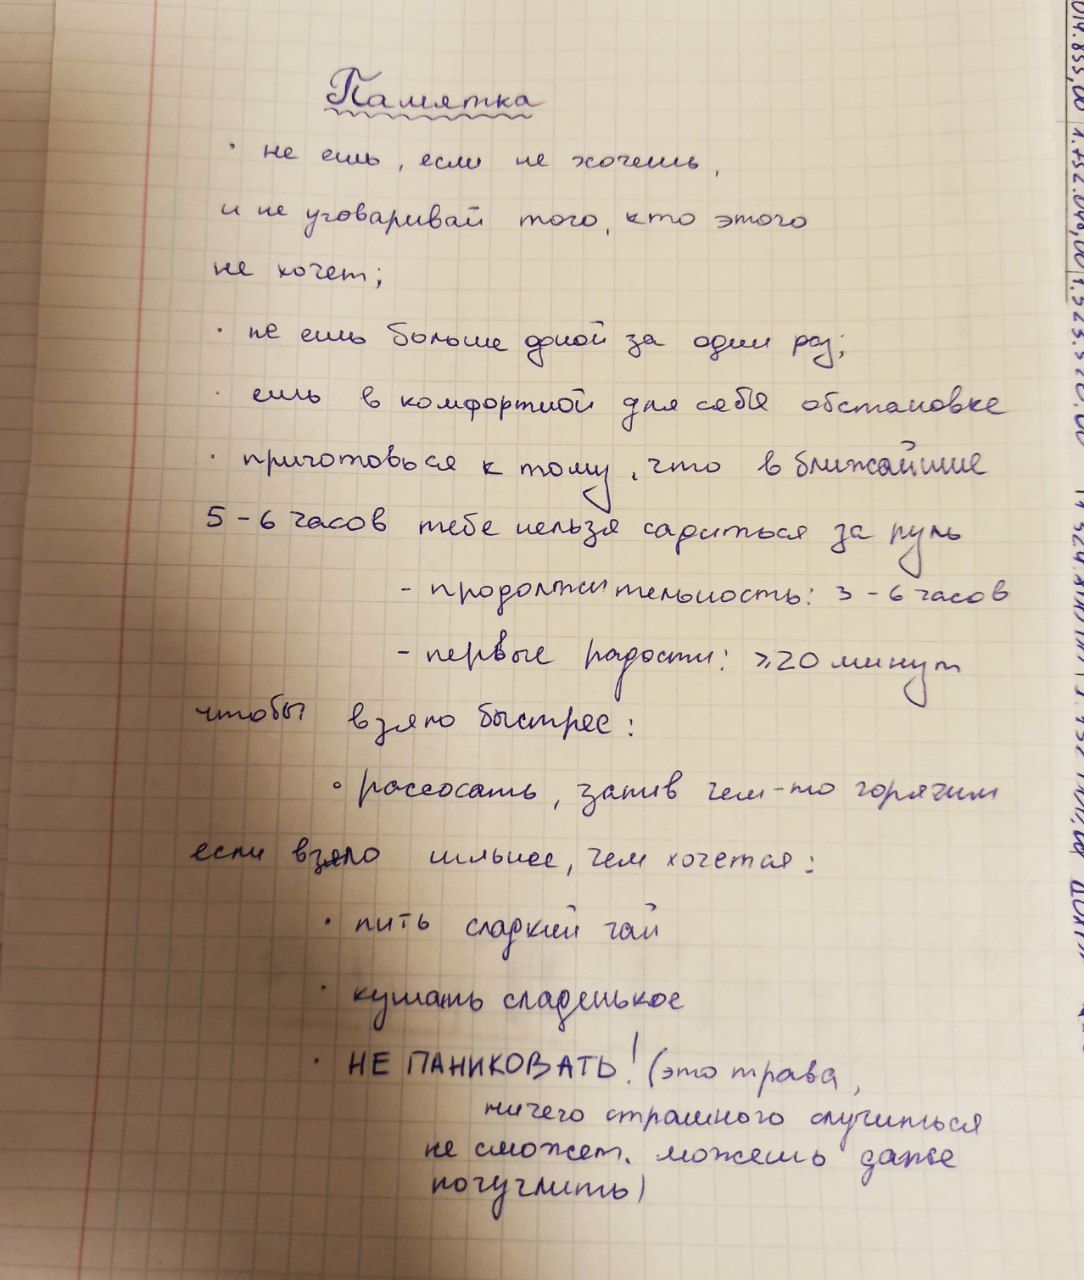 Памятка
· не ешь, если не хочешь,
и не уговаривай того, кто этого
не хочет;
· не ешь больше одной за один раз;
· ешь в комфортной для себя обстановке
· приготовься к тому, что в ближайшие
5-6 часов тебе нельзя садиться за руль
- продолжительность: 3-6 часов
- первые радости: ≥20 минут
чтобы взяло быстрее:
• рассосать, запив чем-то горячим
если взяло сильнее, чем хочется:
· пить сладкий чай
· кушать сладенькое
· НЕ ПАНИКОВАТЬ! (это трава,
ничего страшного случиться
не сможет. можешь даже
погуглить)